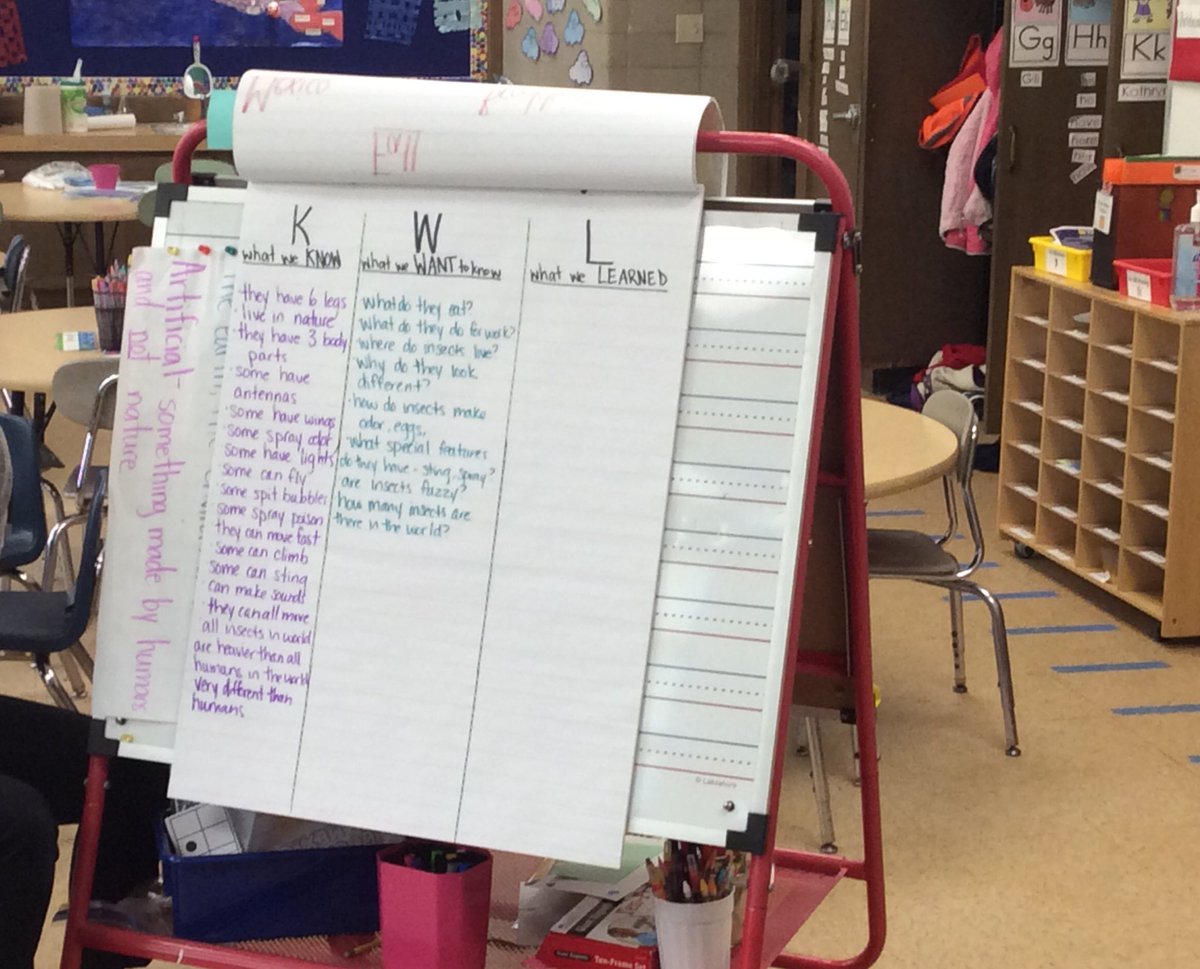 Fall
K
what we KNOW
they have 6 legs
· live in nature
· they have 3 body
parts
· some have
antennas
· some have wings
· some spray odor
some have lights
some can fly
some spit bubbles
some spray poison
they can move fast
some can climb
some can sting
can make sounds
· they can all move
all insects in world
are heavier than all
humans in the world
very different than
humans
W
what we WANT to know
what do they eat?
What do they do for work?
where do insects live?
Why do they look
different?
· how do insects make
odor, eggs,
what special features
do they have - sting, spray?
are insects fuzzy?
how many insects are
there in the world?
L
what we LEARNED
Artificial - something made by humans
and not nature
Gg
Hh
Kk
Gili
Kathryn
have
© Lakeshore
Ten-Frame Set